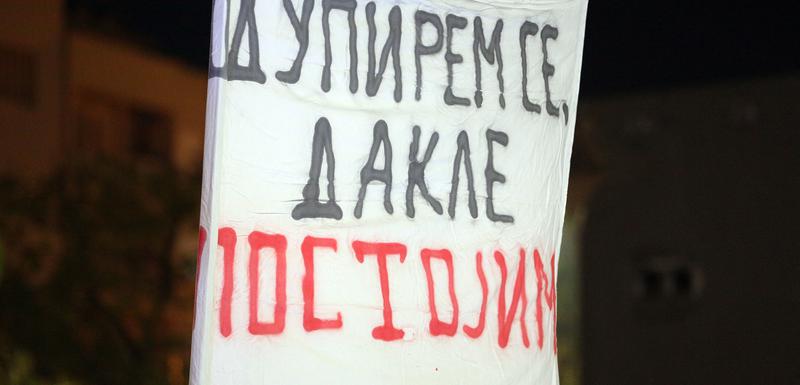 ОДУПИРЕМ СЕ,
ДАКЛЕ
ПОСТОЈИМ